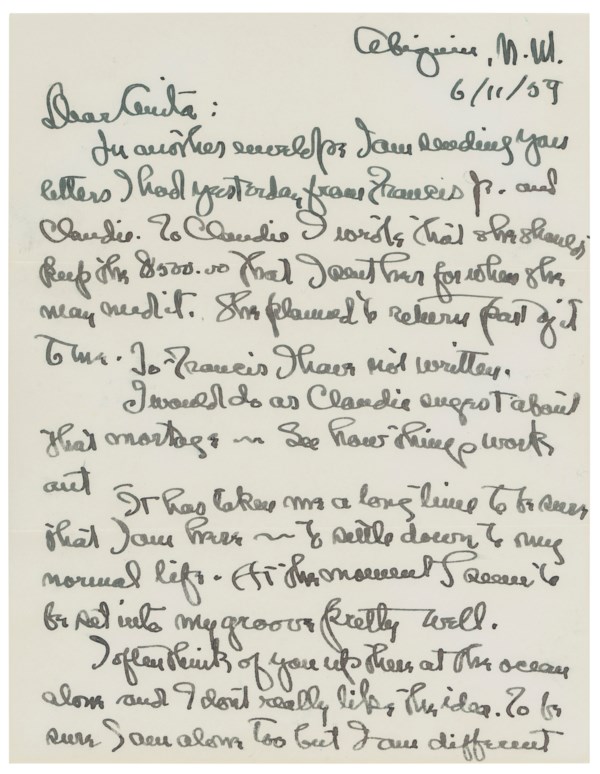 Abiquiu, N.M.
6/11/59
Dear Anita:
In another envelope I am sending you
letters I had yesterday from Francis Jr. and
Claudie. To Claudie I wrote that she should
keep the $500.00 that I sent her for when she
may need it. She planned to return part of it
to me. To Francis I have not written.
I would do as Claudie sugest about
that mortage ~ See how things work
out
It has taken me a long time to be sure
that I am here ~ to settle down to my
normal life. At the moment I seem to
be set into my groove pretty well.
I often think of you up there at the ocean
alone and I dont really like the idea. To be
sure I am alone too but I am different